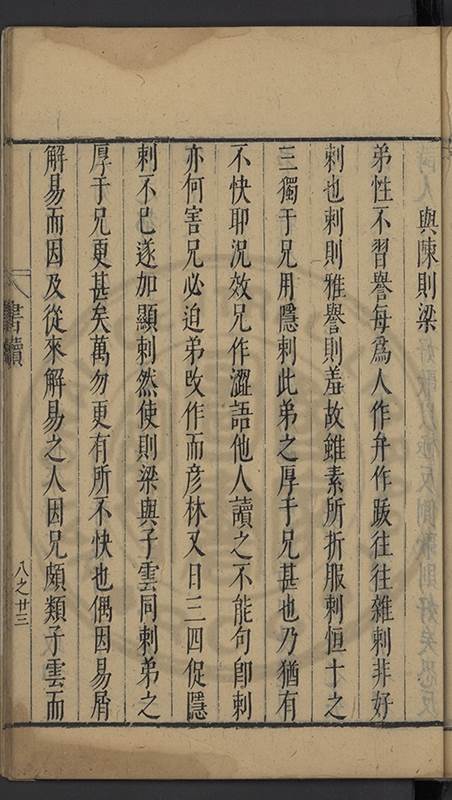 與陳則梁
弟性不習譽每爲人作弁作䟦往往雜刺非好
刺也刺則雅譽則羞故雖素所折服刺恒十之
三獨于兄用隱刺此弟之厚于兄甚也乃猶有
不快耶況效兄作澀語他人讀之不能句卽刺
亦何害兄必迫弟改作而彦林又日三四促隱
刺不已遂加顯刺然使則梁與子雲同刺弟之
厚于兄更甚矣萬勿更有所不快也偶因易屑
解易而因及從來解易之人因兄頗類子雲而
書牘
八之廿三